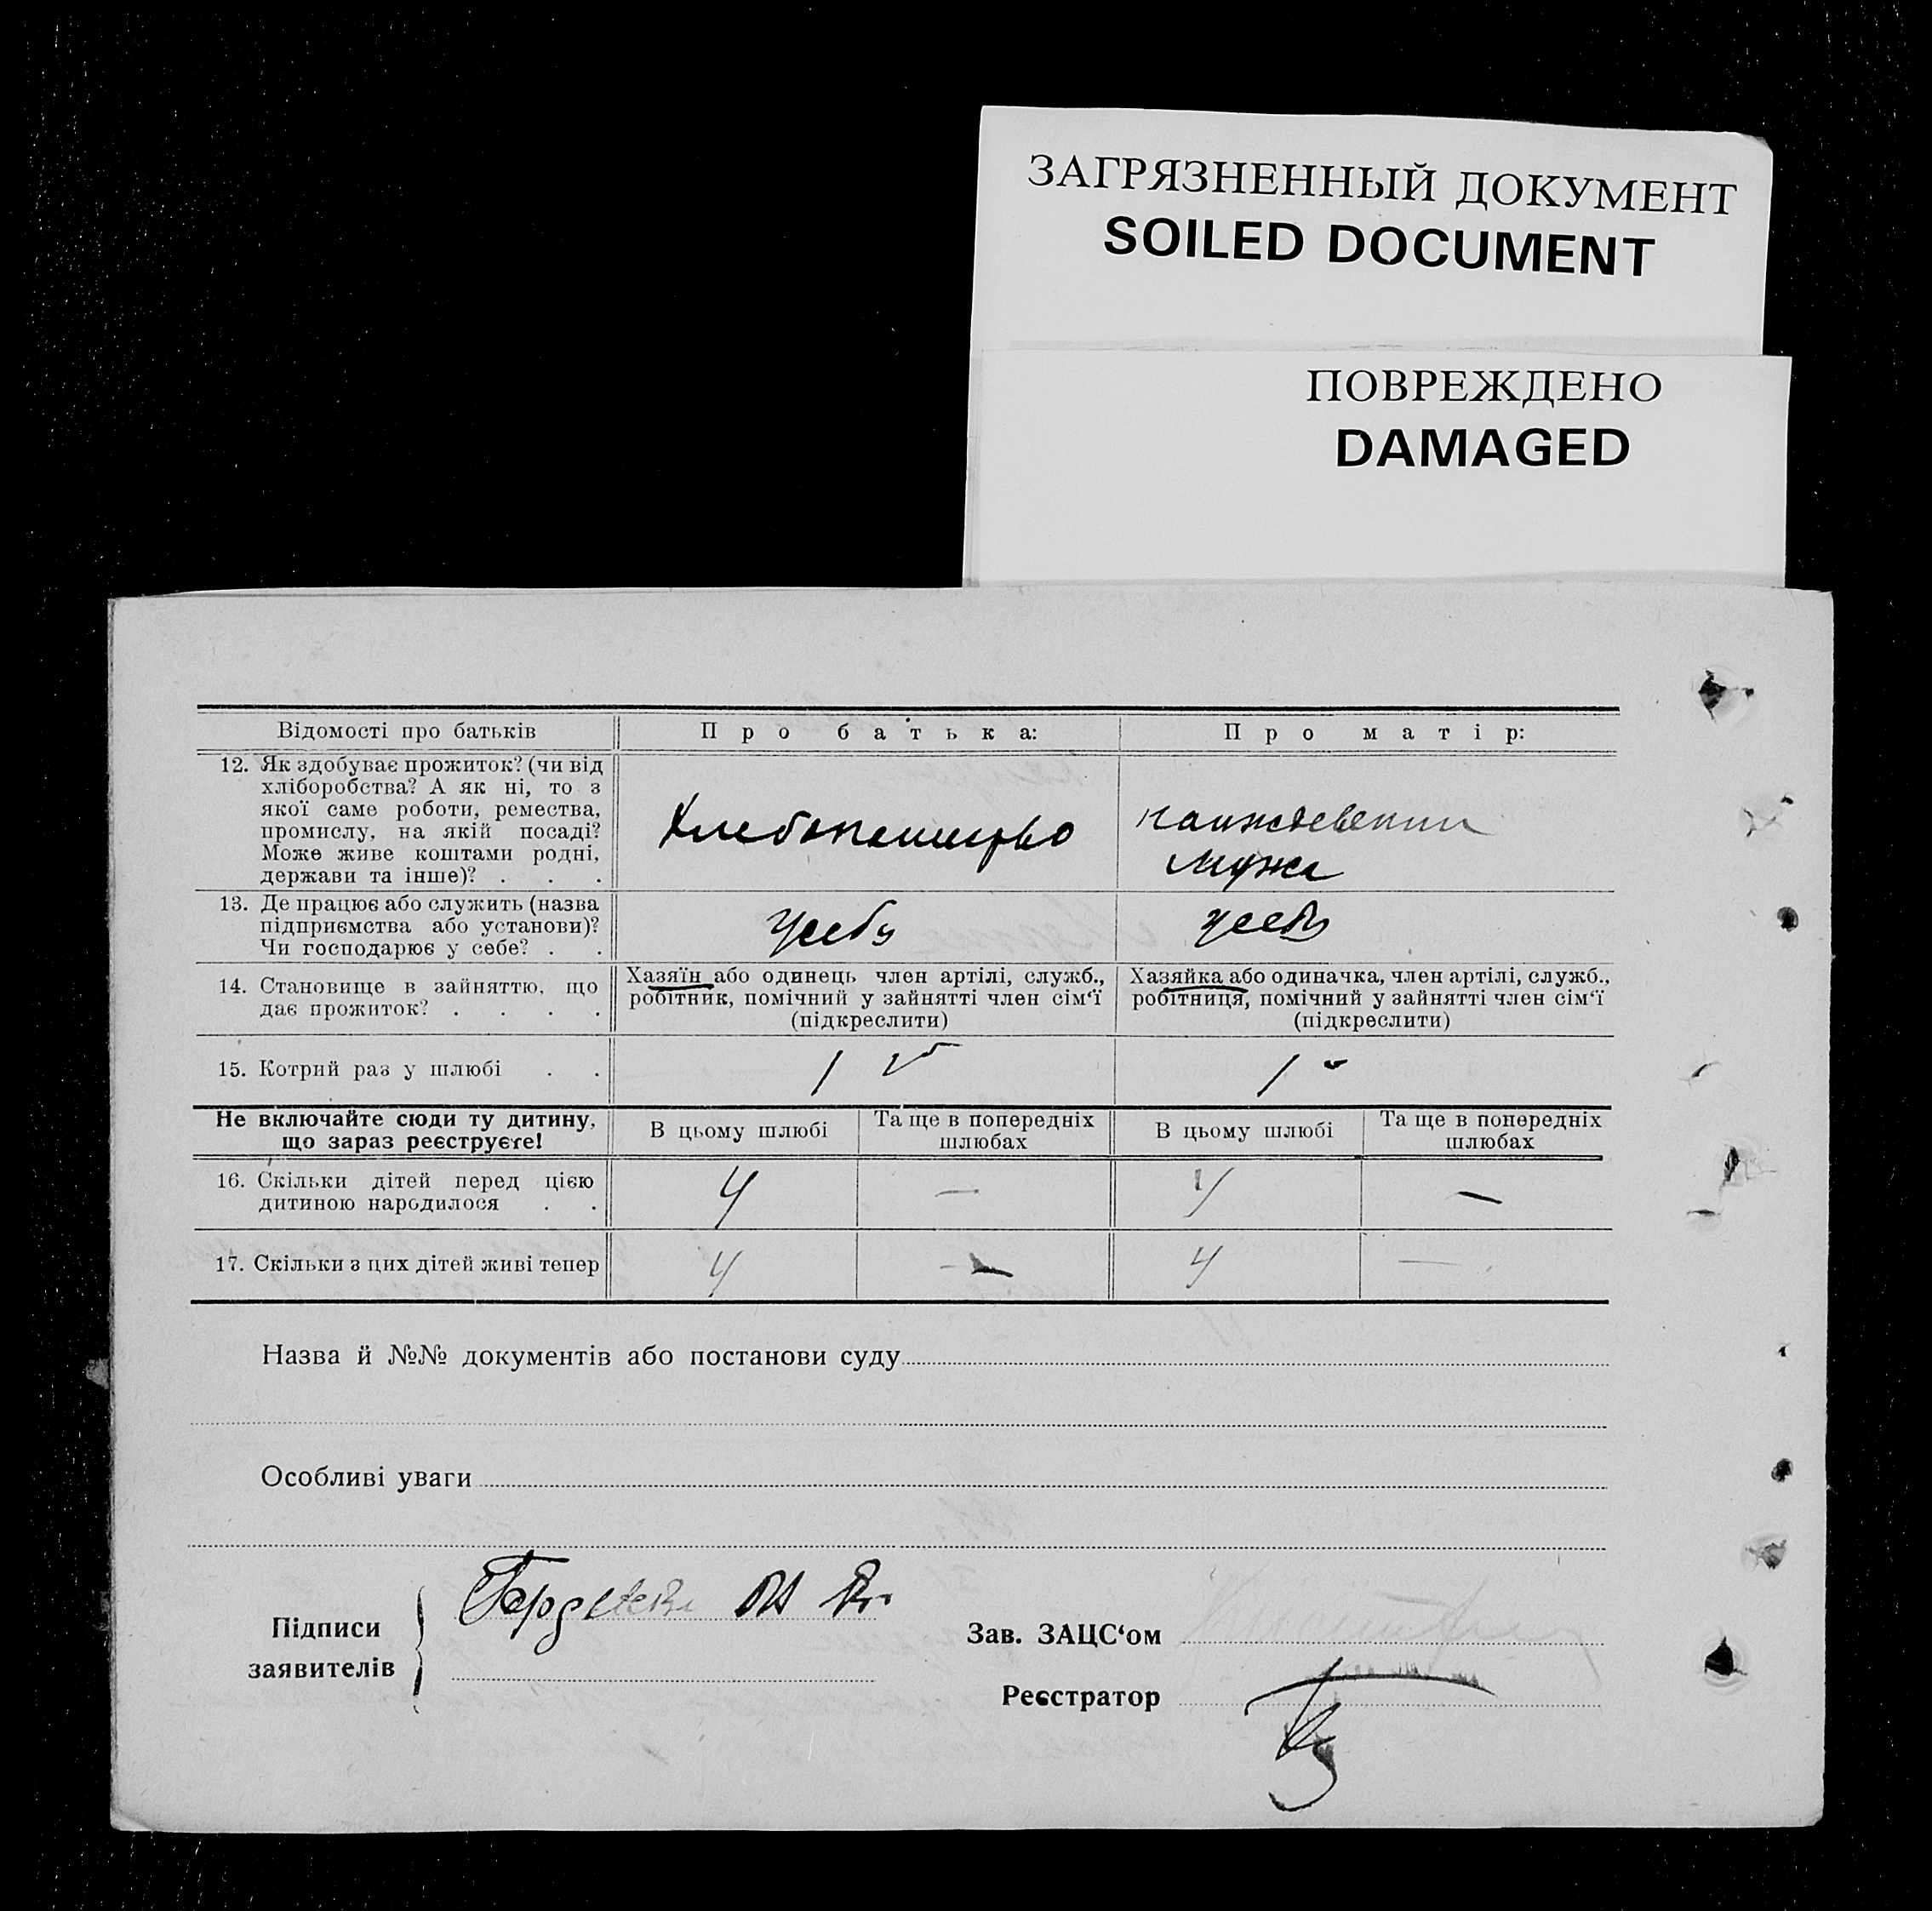 ЗАГРЯЗНЕННЫЙ ДОКУМЕНТ
SOILED DOCUMENT
ПОВРЕЖДЕНО
DAMAGED
Відомості про батьків
Про батька:
Про матір:
12. Як здобуває прожиток? (чи від
хліборобства? А як ні, то з
якої саме роботи, ремества,
промислу, на якій посаді?
Може живе коштами родні,
держави та інше)? . . .
мужа
13. Де працює або служить (назва
підприємства або установи)?
Чи господарює у себе? . .
усебя
усебя
14. Становище в зайняттю, що
дає прожиток? . . . .
Хазяїн або одинець член артілі, служб.,
робітник, помічний у зайнятті член сім'ї
(підкреслити)
Хазяйка або одиначка, член артілі, служб.,
робітниця, помічний у зайнятті член сім'ї
(підкреслити)
15. Котрий раз у шлюбі . .
1
1
Не включайте сюди ту дитину,
що зараз реєструєте!
В цьому шлюбі
Та ще в попередніх
шлюбах
В цьому шлюбі
Та ще в попередніх
шлюбах
16. Скільки дітей перед цією
дитиною народилося . .
4
—
4
—
17. Скільки з цих дітей живі тепер
4
—
4
—
Назва й №№ документів або постанови суду
Особливі уваги
Підписи
заявителів
Зав. ЗАЦС'ом
Реєстратор